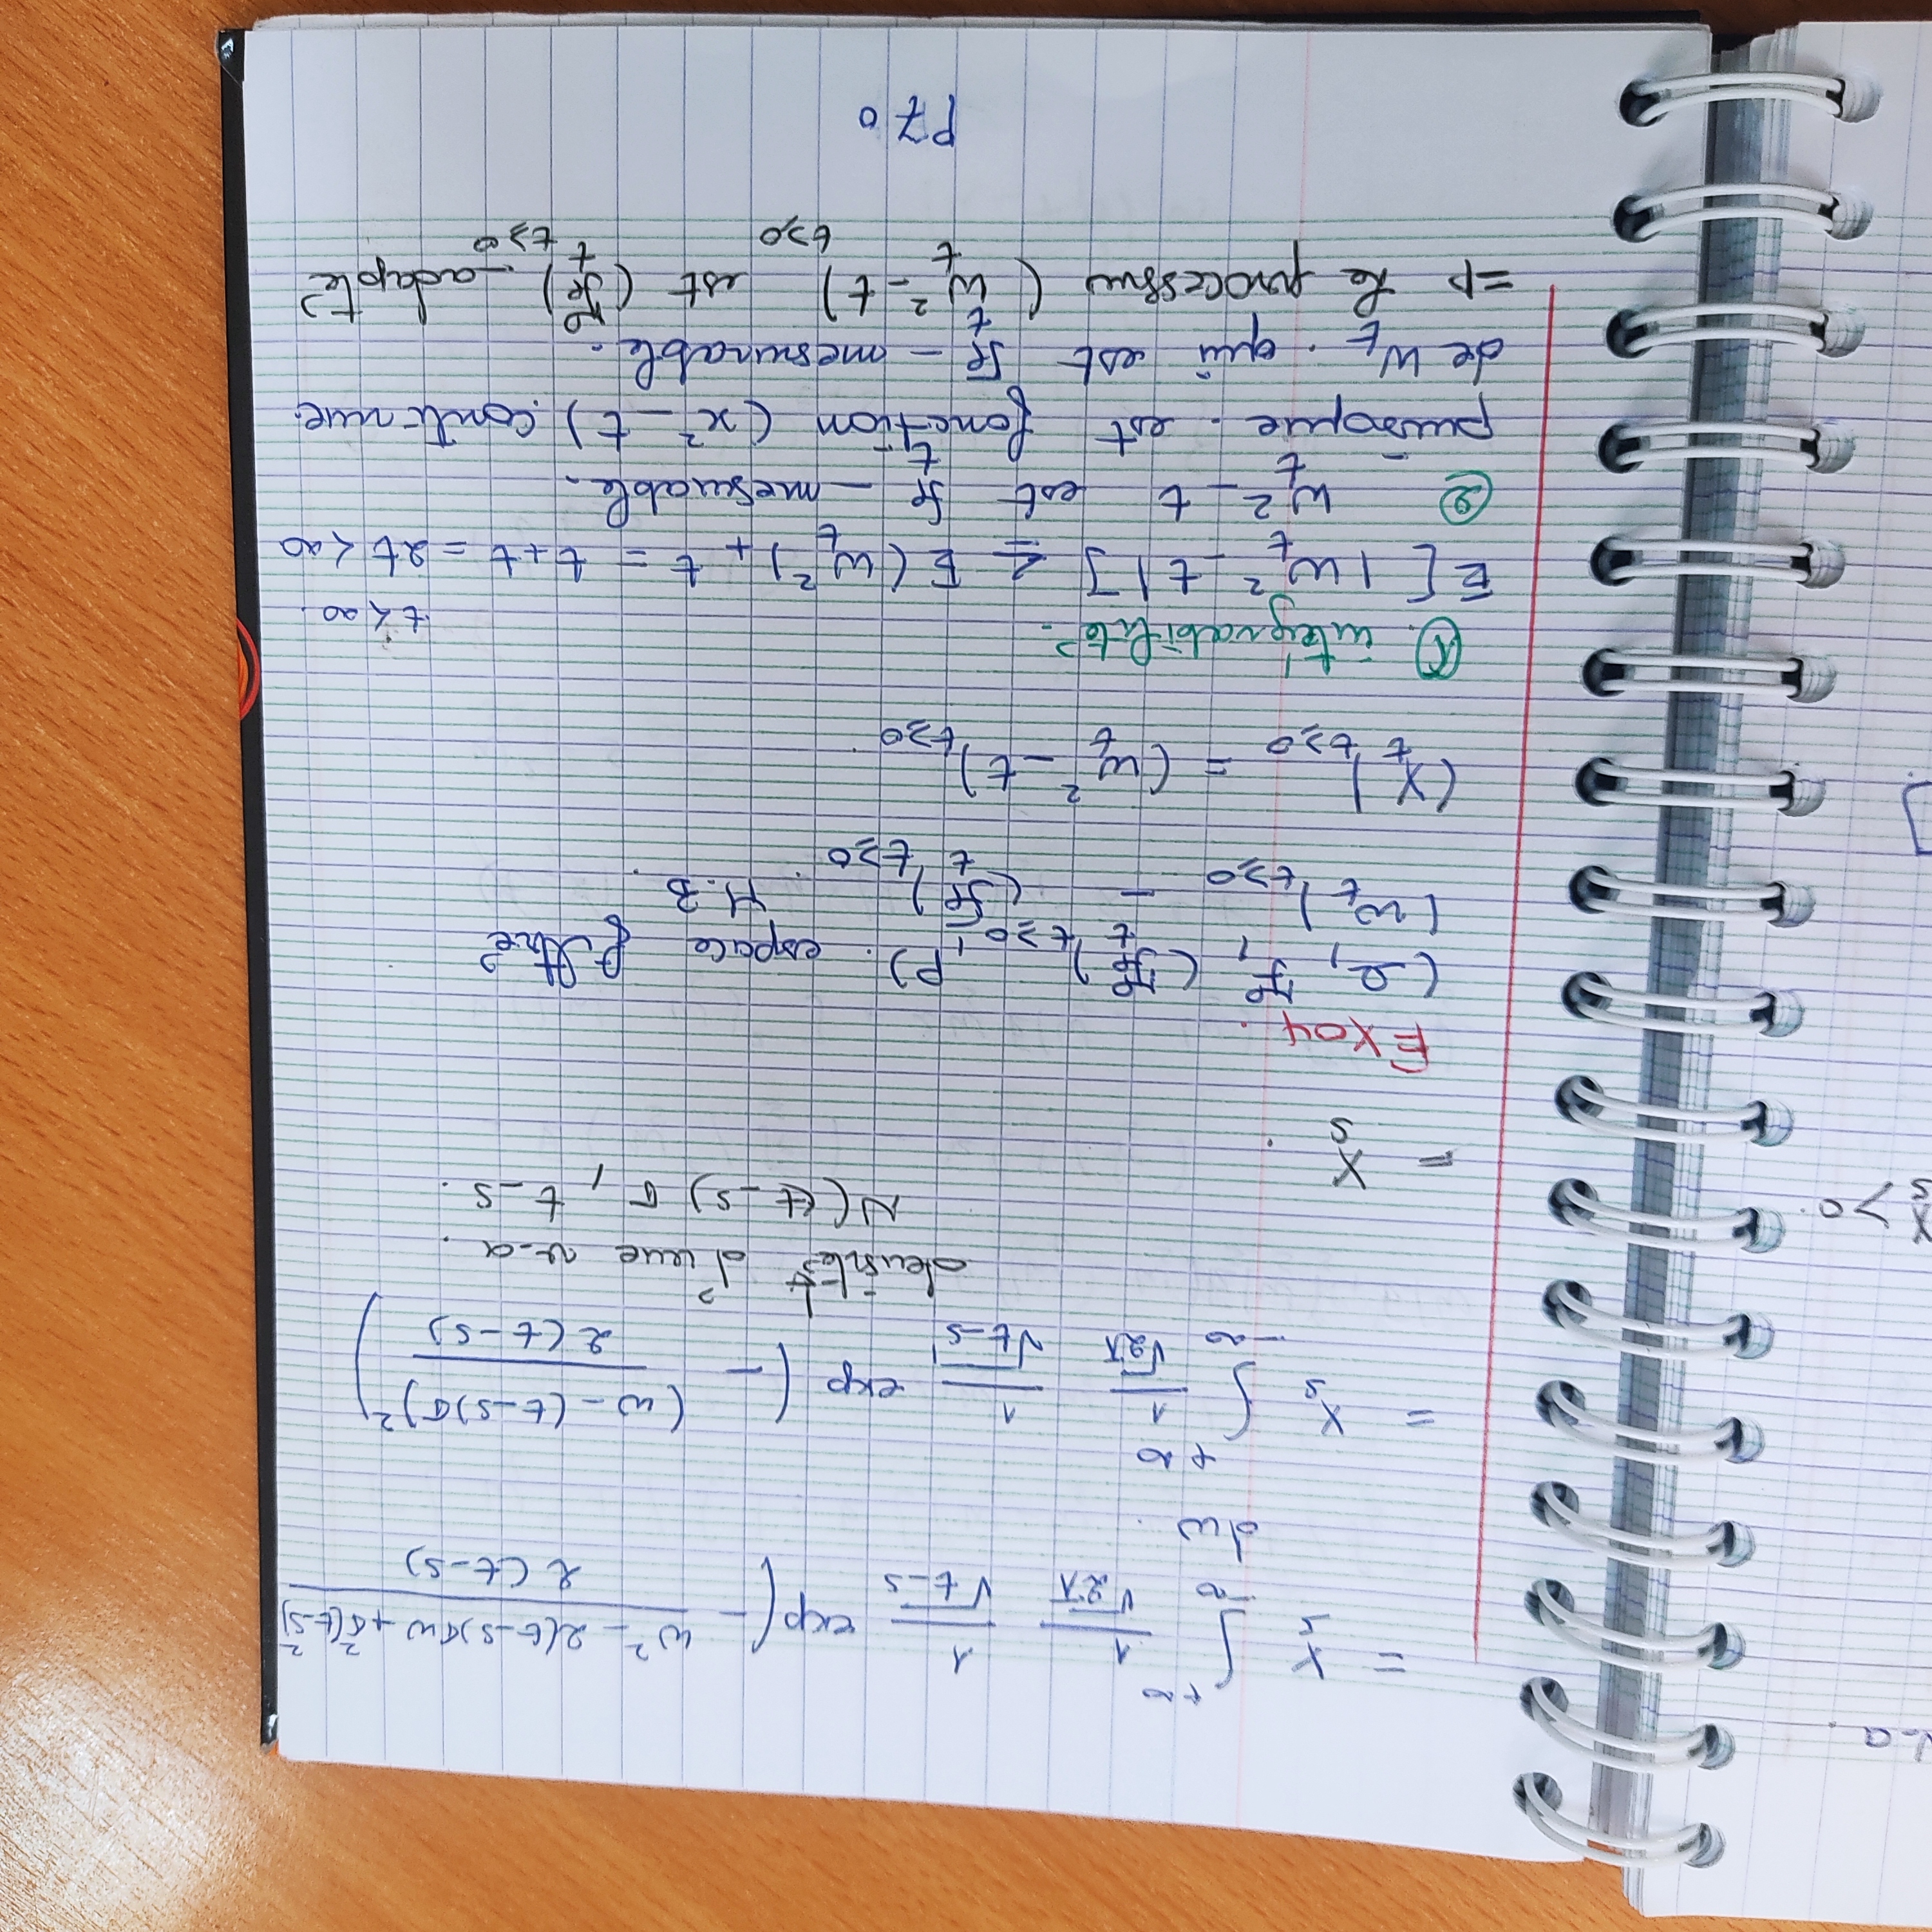 v-a.
X_s > 0.
]
= X_s ∫_{-∞}^{+∞} 1/√2π 1/√t-s exp(- (w² - 2(t-s)σw + σ²(t-s)²)/2(t-s)
dw.
= X_s ∫_{-∞}^{+∞} 1/√2π 1/√t-s exp (- (w-(t-s)σ)²/2(t-s))
densité d'une v-a.
N((t-s)σ, t-s.
= X_s.
Exo4.
(Ω, F, (F_t)_{t≥0}, P). espace filtré
(W_t)_{t≥0} - (F_t)_{t≥0}. M.B.
(X_t)_{t≥0} = (W_t² - t)_{t≥0}.
① intégrabilité.
t < ∞.
E[ |W_t² - t| ] ≤ E(W_t²) + t = t + t = 2t < ∞
② W_t² - t est F_t - mesurable.
puisque. est fonction (x² - t). continue.
de W_t. qui est F_t - mesurable.
⇒ Le processus (W_t² - t)_{t≥0} est (F_t)_{t≥0} - adapté
P70